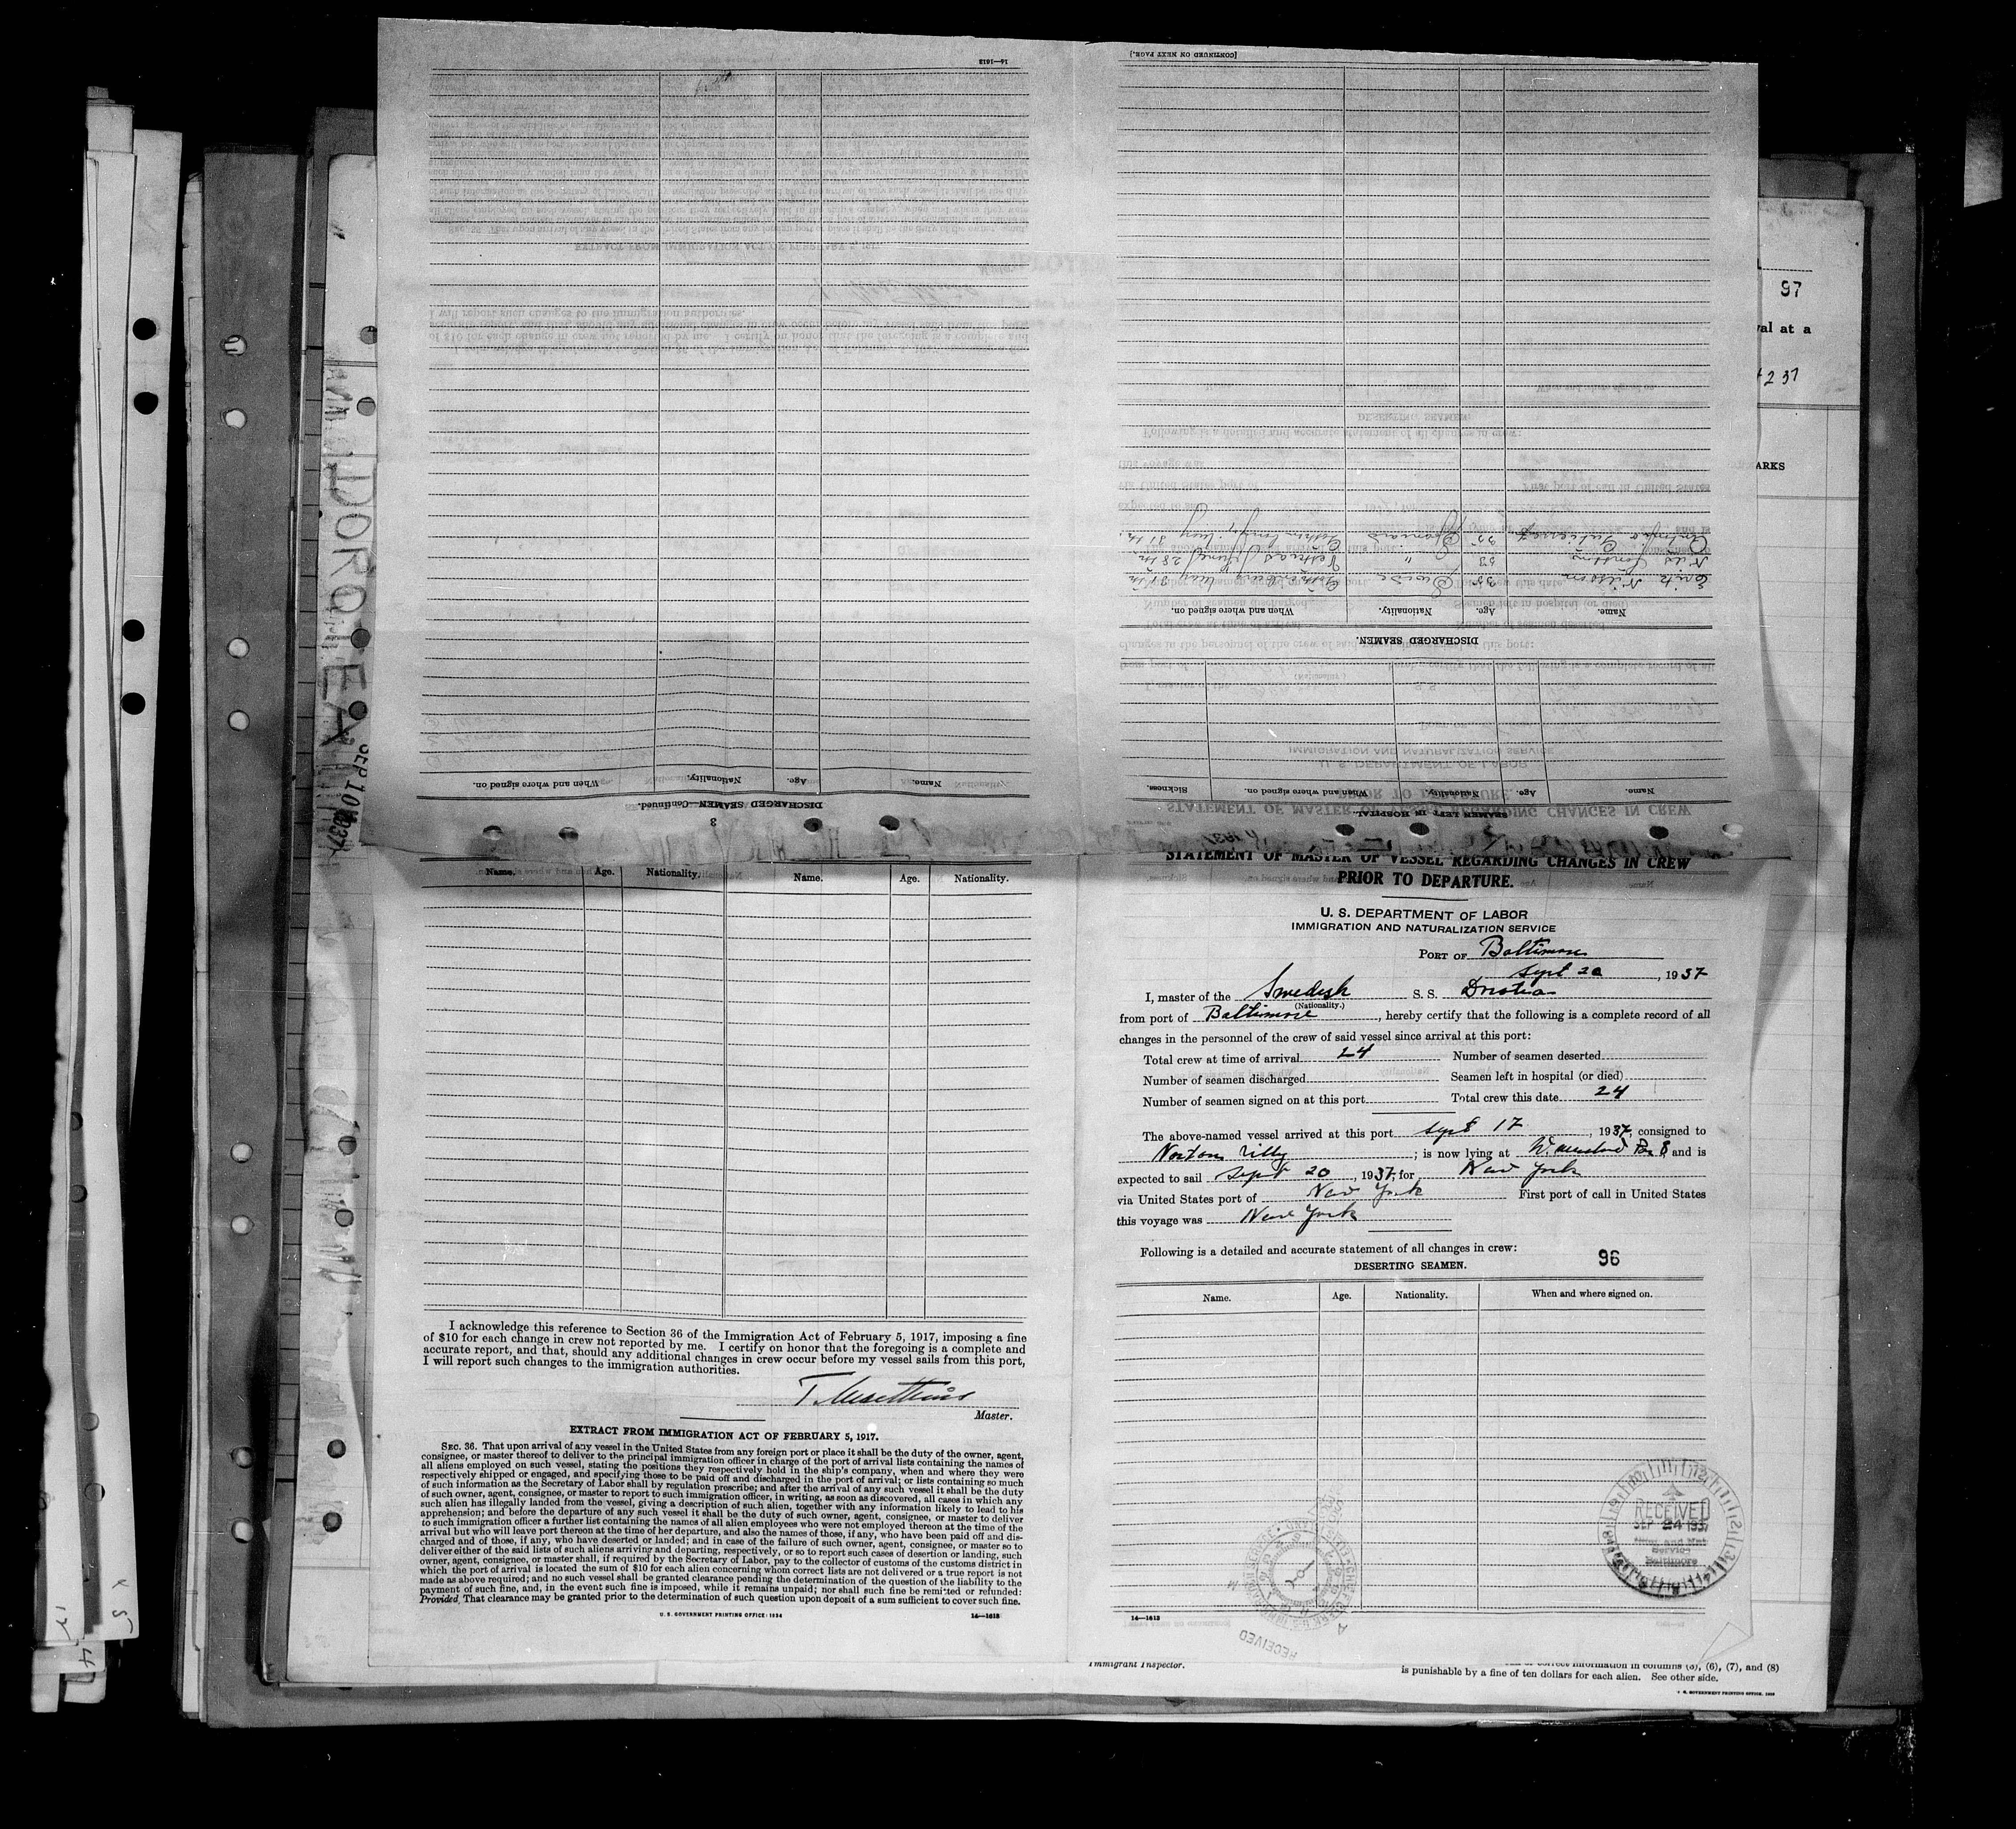 [CONTINUED ON NEXT PAGE.]
14—1613
DISCHARGED SEAMEN.
Name. Age. Nationality. When and where signed on.
Nilsson 35 Swede 31th
Nils 53 " 28th
Antonio 35 Spaniard 31th
SEAMEN LEFT IN HOSPITAL
Name. Age. Nationality. When and where signed on. Sickness.
3
DISCHARGED SEAMEN—Continued.
Name. Age. Nationality. When and where signed on.
DOROTEA
SEP 10 1937
97
val at a
237
ARKS
Name. Age. Nationality. Name. Age. Nationality.
I acknowledge this reference to Section 36 of the Immigration Act of February 5, 1917, imposing a fine
of $10 for each change in crew not reported by me. I certify on honor that the foregoing is a complete and
accurate report, and that, should any additional changes in crew occur before my vessel sails from this port,
I will report such changes to the immigration authorities.
Master.
EXTRACT FROM IMMIGRATION ACT OF FEBRUARY 5, 1917.
SEC. 36. That upon arrival of any vessel in the United States from any foreign port or place it shall be the duty of the owner, agent,
consignee, or master thereof to deliver to the principal immigration officer in charge of the port of arrival lists containing the names of
all aliens employed on such vessel, stating the positions they respectively hold in the ship's company, when and where they were
respectively shipped or engaged, and specifying those to be paid off and discharged in the port of arrival; or lists containing so much
of such information as the Secretary of Labor shall by regulation prescribe; and after the arrival of any such vessel it shall be the duty
of such owner, agent, consignee, or master to report to such immigration officer, in writing, as soon as discovered, all cases in which any
such alien has illegally landed from the vessel, giving a description of such alien, together with any information likely to lead to his
apprehension; and before the departure of any such vessel it shall be the duty of such owner, agent, consignee, or master to deliver
to such immigration officer a further list containing the names of all alien employees who were not employed thereon at the time of the
arrival but who will leave port thereon at the time of her departure, and also the names of those, if any, who have been paid off and dis-
charged and of those, if any, who have deserted or landed; and in case of the failure of such owner, agent, consignee, or master so to
deliver either of the said lists of such aliens arriving and departing, respectively, or so to report such cases of desertion or landing, such
owner, agent, consignee, or master shall, if required by the Secretary of Labor, pay to the collector of customs of the customs district in
which the port of arrival is located the sum of $10 for each alien concerning whom correct lists are not delivered or a true report is not
made as above required; and no such vessel shall be granted clearance pending the determination of the question of the liability to the
payment of such fine, and, in the event such fine is imposed, while it remains unpaid; nor shall such fine be remitted or refunded:
Provided, That clearance may be granted prior to the determination of such question upon deposit of a sum sufficient to cover such fine.
U. S. GOVERNMENT PRINTING OFFICE: 1934 14—1613
STATEMENT OF MASTER OF VESSEL REGARDING CHANGES IN CREW
PRIOR TO DEPARTURE.
U. S. DEPARTMENT OF LABOR
IMMIGRATION AND NATURALIZATION SERVICE
PORT OF Baltimore
Sept 20, 1937
I, master of the Swedish S. S.
(Nationality.)
from port of Baltimore, hereby certify that the following is a complete record of all
changes in the personnel of the crew of said vessel since arrival at this port:
Total crew at time of arrival 24 Number of seamen deserted
Number of seamen discharged Seamen left in hospital (or died)
Number of seamen signed on at this port Total crew this date 24
The above-named vessel arrived at this port Sept 17, 1937, consigned to
Norton Lilly; is now lying at and is
expected to sail Sept 20, 1937, for New York
via United States port of New York First port of call in United States
this voyage was New York
Following is a detailed and accurate statement of all changes in crew:
96
DESERTING SEAMEN.
Name. Age. Nationality. When and where signed on.
RECEIVED
SEP 24 1937
Immig. and Nat.
Service
Baltimore
RECEIVED
14—1613
Immigrant Inspector.
correct information in columns (5), (6), (7), and (8)
is punishable by a fine of ten dollars for each alien. See other side.